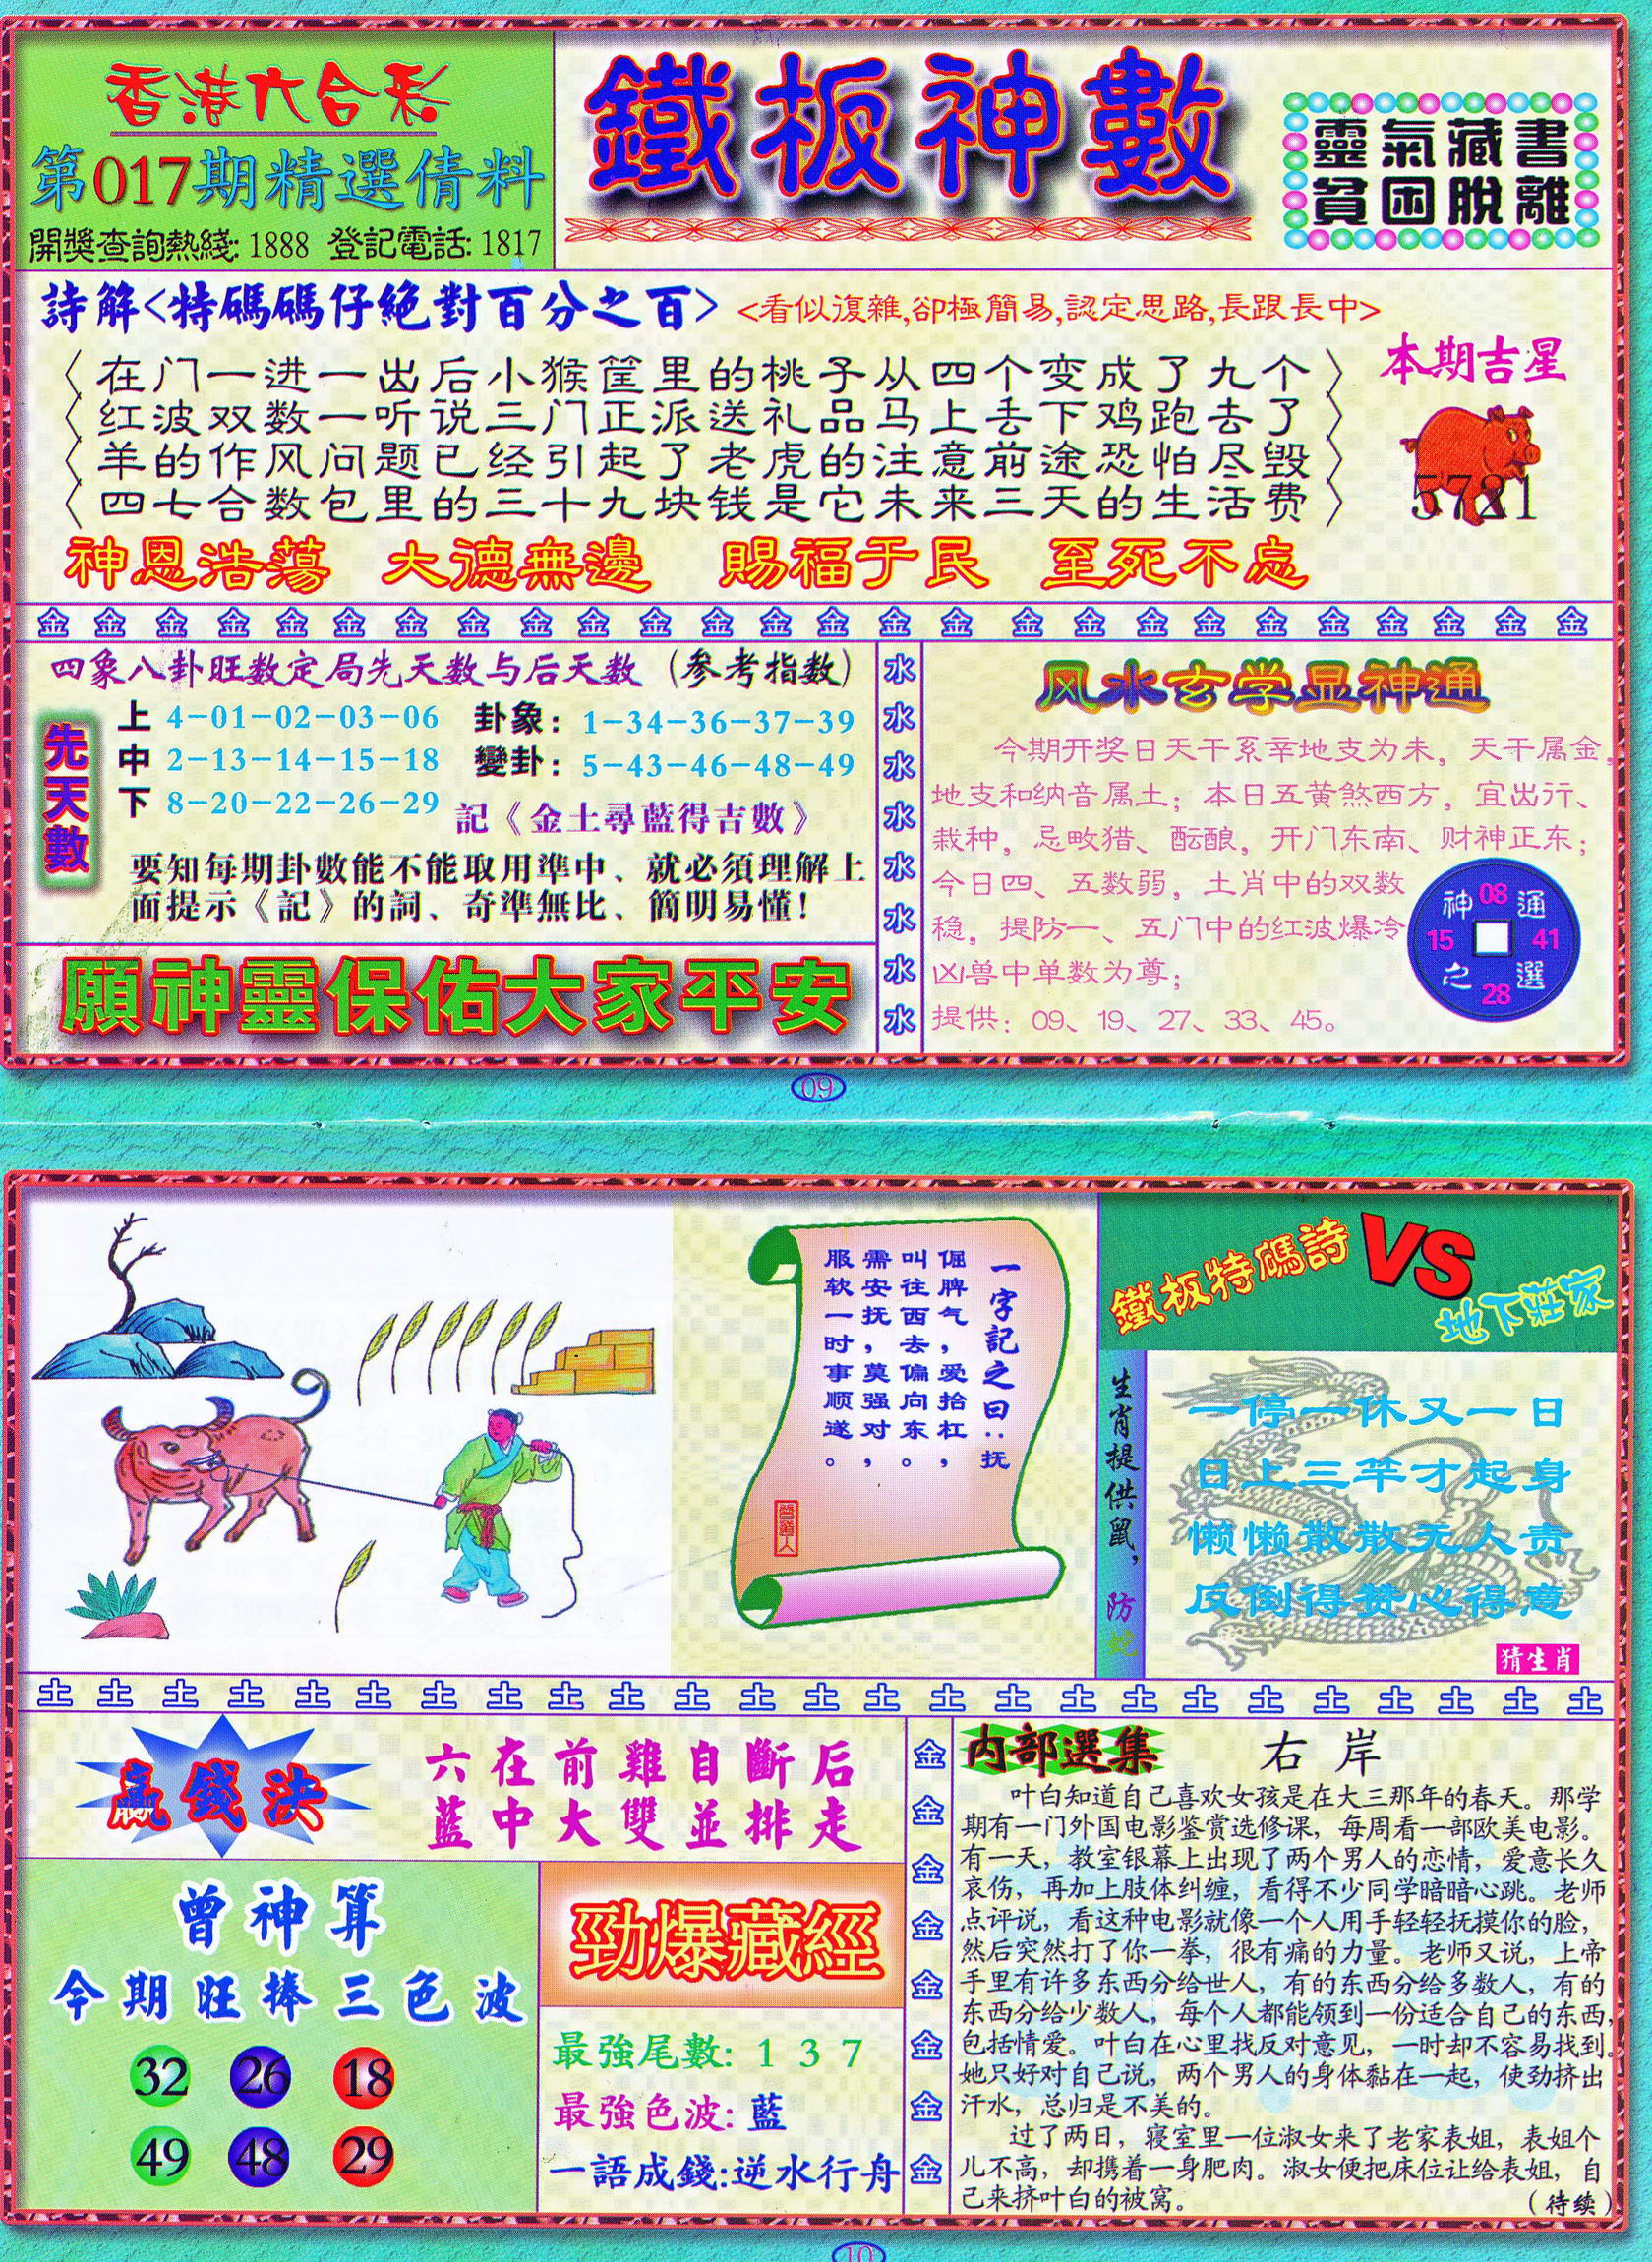 香港六合彩
第017期精選倩料
開獎查詢熱綫: 1888 登記電話: 1817
鐵板神數
靈氣藏書
貧困脫離
詩解<特碼碼仔絕對百分之百> <看似復雜,卻極簡易,認定思路,長跟長中>
在门一进一出后小猴筐里的桃子从四个变成了九个
红波双数一听说三门正派送礼品马上丢下鸡跑去了
羊的作风问题已经引起了老虎的注意前途恐怕尽毁
四七合数包里的三十九块钱是它未来三天的生活费
本期吉星
5721
神恩浩蕩 大德無邊 賜福于民 至死不忘
金 金 金 金 金 金 金 金 金 金 金 金 金 金 金 金 金 金 金 金 金 金 金 金 金 金
四象八卦旺数定局先天数与后天数(参考指数)
先天數
上 4-01-02-03-06 卦象: 1-34-36-37-39
中 2-13-14-15-18 變卦: 5-43-46-48-49
下 8-20-22-26-29
記《金土尋藍得吉數》
要知每期卦數能不能取用準中、就必須理解上
面提示《記》的詞、奇準無比、簡明易懂!
願神靈保佑大家平安
水
水
水
水
水
水
水
水
风水玄学显神通
今期开奖日天干系辛地支为未，天干属金，
地支和纳音属土；本日五黄煞西方，宜出行、
栽种，忌畋猎、酝酿，开门东南、财神正东；
今日四、五数弱，土肖中的双数
稳，提防一、五门中的红波爆冷
凶兽中单数为尊；
提供：09、19、27、33、45。
神 08 通
15 41
之 28 選
09
一字記之曰：抚
倔脾气，爱抬杠，
叫往西去，偏向东。
需安抚，莫强对，
服软一时事顺遂。
曾道人
鐵板特碼詩
VS
地下莊家
生肖提供鼠，防蛇
一停一休又一日
日上三竿才起身
懒懒散散无人责
反倒得赞心得意
猜生肖
土 土 土 土 土 土 土 土 土 土 土 土 土 土 土 土 土 土 土 土 土 土 土 土 土
贏錢決
六在前雞自斷后
藍中大雙並排走
曾神算
今期旺捧三色波
32 26 18
49 48 29
勁爆藏經
最強尾數: 1 3 7
最強色波: 藍
一語成錢:逆水行舟
金
金
金
金
金
金
金
金
内部選集 右岸
叶白知道自己喜欢女孩是在大三那年的春天。那学
期有一门外国电影鉴赏选修课，每周看一部欧美电影。
有一天，教室银幕上出现了两个男人的恋情，爱意长久
哀伤，再加上肢体纠缠，看得不少同学暗暗心跳。老师
点评说，看这种电影就像一个人用手轻轻抚摸你的脸，
然后突然打了你一拳，很有痛的力量。老师又说，上帝
手里有许多东西分给世人，有的东西分给多数人，有的
东西分给少数人，每个人都能领到一份适合自己的东西，
包括情爱。叶白在心里找反对意见，一时却不容易找到。
她只好对自己说，两个男人的身体黏在一起，使劲挤出
汗水，总归是不美的。
过了两日，寝室里一位淑女来了老家表姐，表姐个
儿不高，却携着一身肥肉。淑女便把床位让给表姐，自
己来挤叶白的被窝。
(待续)
10